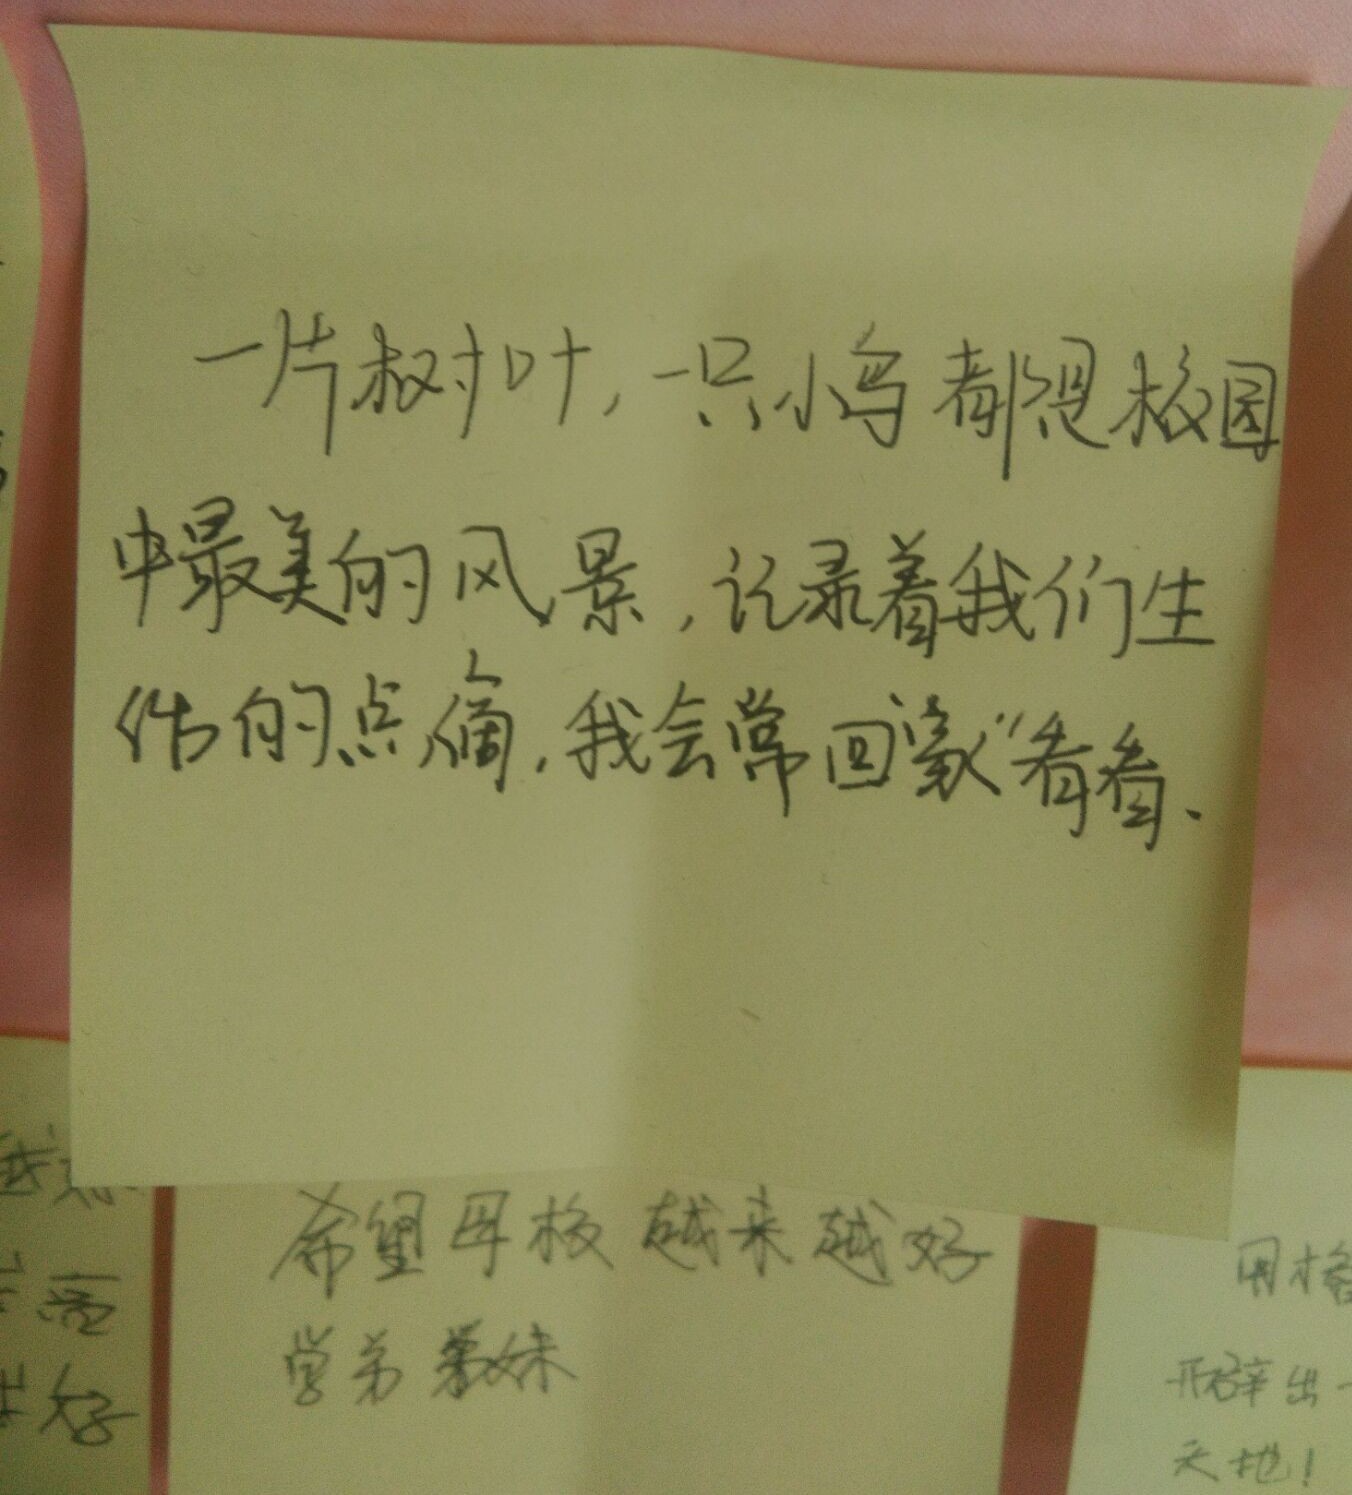 一片树叶，一只小鸟都是校园
中最美的风景，记录着我们生
活的点滴，我会常回“家”看看、
希望母校越来越好
学弟 学妹
开辟出一
天地！